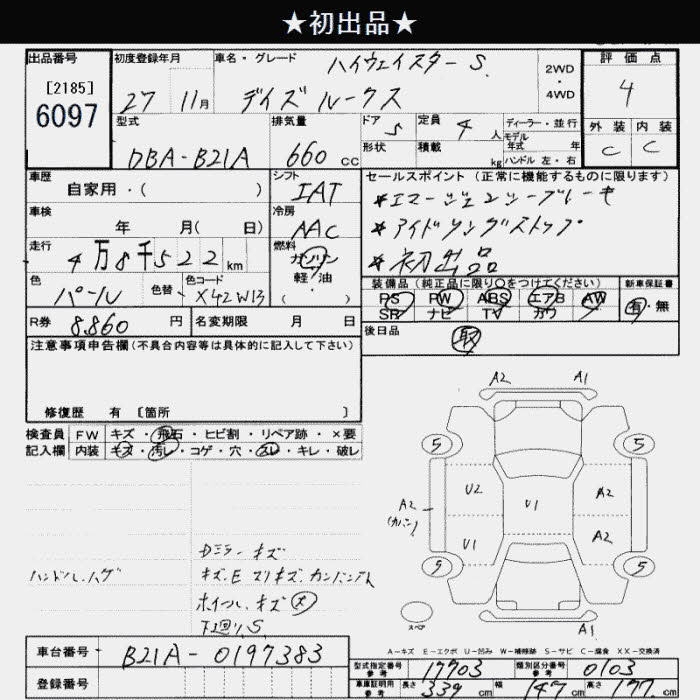 ★初出品★
出品番号 初度登録年月 車名・グレード ハイウェイスターS 2WD・4WD 評価点
[2185]
6097 27 11月 デイズルークス 4
型式 排気量 ドア 5 定員 4人 ディーラー・並行 外装 内装
DBA-B21A 660cc 形状 積載 kg モデル年式 年 ハンドル 左・右 C C
車歴 シフト セールスポイント (正常に機能するものに限ります)
自家用・( ) IAT *エマージェンシーブレーキ
車検 冷房 *アイドリングストップ
年 月( 日) AAC *初出品
走行 燃料
4万8千522km ガソリン
軽・油
・( )
色 色替 色コード 装備品 (純正品に限り○をつけてください) 新車保証書
パール X42W13 PS PW ABS エアB AW 有・無
SR ナビ TV カワ
R券 8,860円 名変期限 月 日 後日品 取
注意事項申告欄 (不具合内容等は具体的に記入して下さい)
修復歴 有 [箇所 ]
検査員 FW キズ・飛石・ヒビ割・リペア跡・×要
記入欄 内装 キズ・汚レ・コゲ・穴・スレ・キレ・破レ
A2 A1
5 5
U2 A2
A2 U1
(カバン)
U1 A2
5 5
スペア A1
Dミラーキズ
ハンドルハゲ キズ.E スリキズ.カンバンアト
ホイールキズ 大
下回りS
A-キズ E-エクボ U-凹み W-補修跡 S-サビ C-腐食 XX-交換済
車台番号 B21A-0197383
登録番号
型式指定番号 参考 17703 類別区分番号 参考 0103
車庫証明用 参考 長さ 339cm 幅 147cm 高さ 177cm